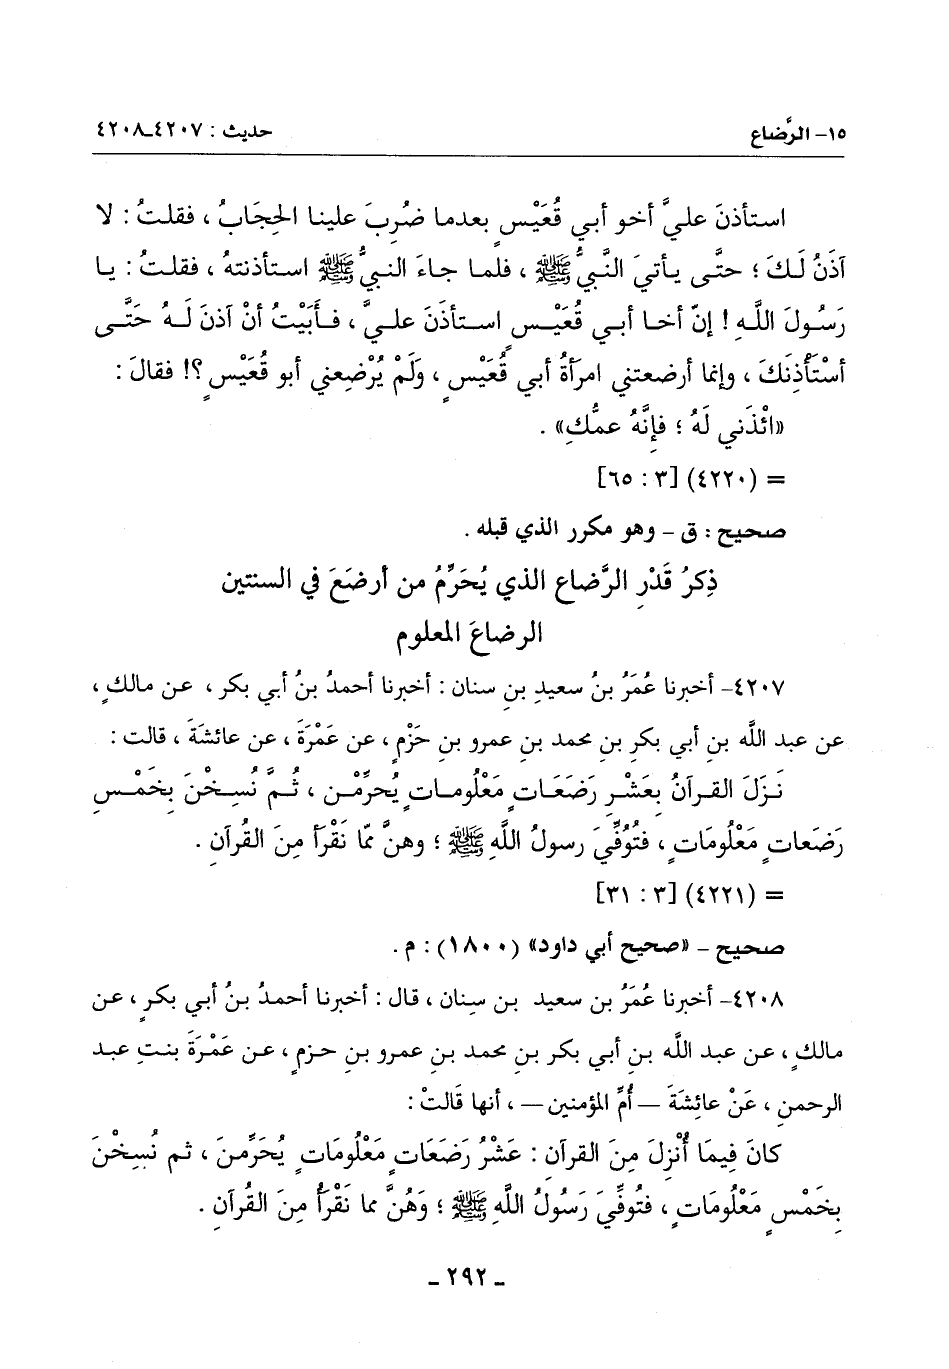 ١٥- الرَّضاع
حديث : ٤٢٠٧ـ٤٢٠٨
استأذنَ عليَّ أخو أبي قُعَيْسٍ بعدما ضُرِبَ علينا الحِجَابُ ، فقلتُ : لا
آذَنُ لَكَ ؛ حتَّى يأتيَ النَّبيُّ ﷺ ، فلما جاءَ النبيُّ ﷺ استأذنتهُ ، فقلتُ : يا
رَسُولَ اللَّهِ ! إنّ أخا أبي قُعَيْسٍ استأذَنَ عليَّ ، فأَبَيْتُ أنْ آذنَ لَهُ حتَّى
أسْتَأْذِنَكَ ، وإنما أرضعتني امرَأةُ أبي قُعَيْسٍ ، ولَمْ يُرْضِعني أبو قُعَيْسٍ ؟! فقالَ :
«ائْذَني لَهُ ؛ فإنَّهُ عمُّكِ» .
= (٤٢٢٠) [٣ : ٦٥]
صحيح : ق - وهو مكرر الذي قبله .
ذِكرُ قَدْرِ الرَّضاع الذي يُحَرِّمُ من أرضَعَ في السنتين
الرضاعَ المعلوم
٤٢٠٧- أخبرنا عُمَرُ بنُ سعيدِ بنِ سنان : أخبرنا أحمدُ بنُ أبي بكر ، عن مالكٍ ،
عن عبد اللَّه بن أبي بكرِ بنِ محمد بنِ عمرو بنِ حَزْمٍ ، عن عَمْرَةَ ، عن عائشَةَ ، قالت :
نَزَلَ القرآنُ بعَشْرِ رَضَعَاتٍ مَعْلُوماتٍ يُحرِّمْن ، ثُمَّ نُسِخْنَ بخَمْسِ
رَضَعات مَعْلُومَاتٍ ، فتُوُفِّيَ رسولُ اللَّهِ ﷺ ؛ وهنَّ ممّا نَقْرَأ مِنَ القُرآنِ .
= (٤٢٢١) [٣ : ٣١]
صحيح - «صحيح أبي داود» (١٨٠٠) : م .
٤٢٠٨- أخبرنا عُمَرُ بن سعيد بن سِنان ، قال : أخبرنا أحمدُ بنُ أبي بكرٍ ، عن
مالكٍ ، عن عبد اللَّه بنِ أبي بكر بنِ محمد بنِ عمرو بنِ حزمٍ ، عن عَمْرَةَ بنتِ عبد
الرحمنِ ، عَنْ عائِشَةَ — أُمِّ المؤمنين — ، أنها قَالتْ :
كانَ فِيمَا أُنْزِلَ مِنَ القرآنِ : عَشْرُ رَضَعَاتٍ مَعْلُومَاتٍ يُحَرِّمنَ ، ثم نُسِخْنَ
بِخَمْسٍ مَعْلُومَاتٍ ، فتُوفِّيَ رَسُولُ اللَّهِ ﷺ ؛ وَهُنَّ مما نَقْرَأُ مِنَ القُرآنِ .
- ٢٩٢ -